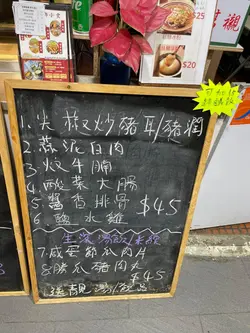 $20
$25
1. 尖椒炒豬耳/豬潤
2 蒜泥白肉
3. 炆牛腩
4. 酸菜大腸
5 醬香排骨 $45
6 鹽水雞
生滾湯飯米線
7. 咸蛋節瓜肉片
8 勝瓜豬肉丸
$45
送靚湯/飲品